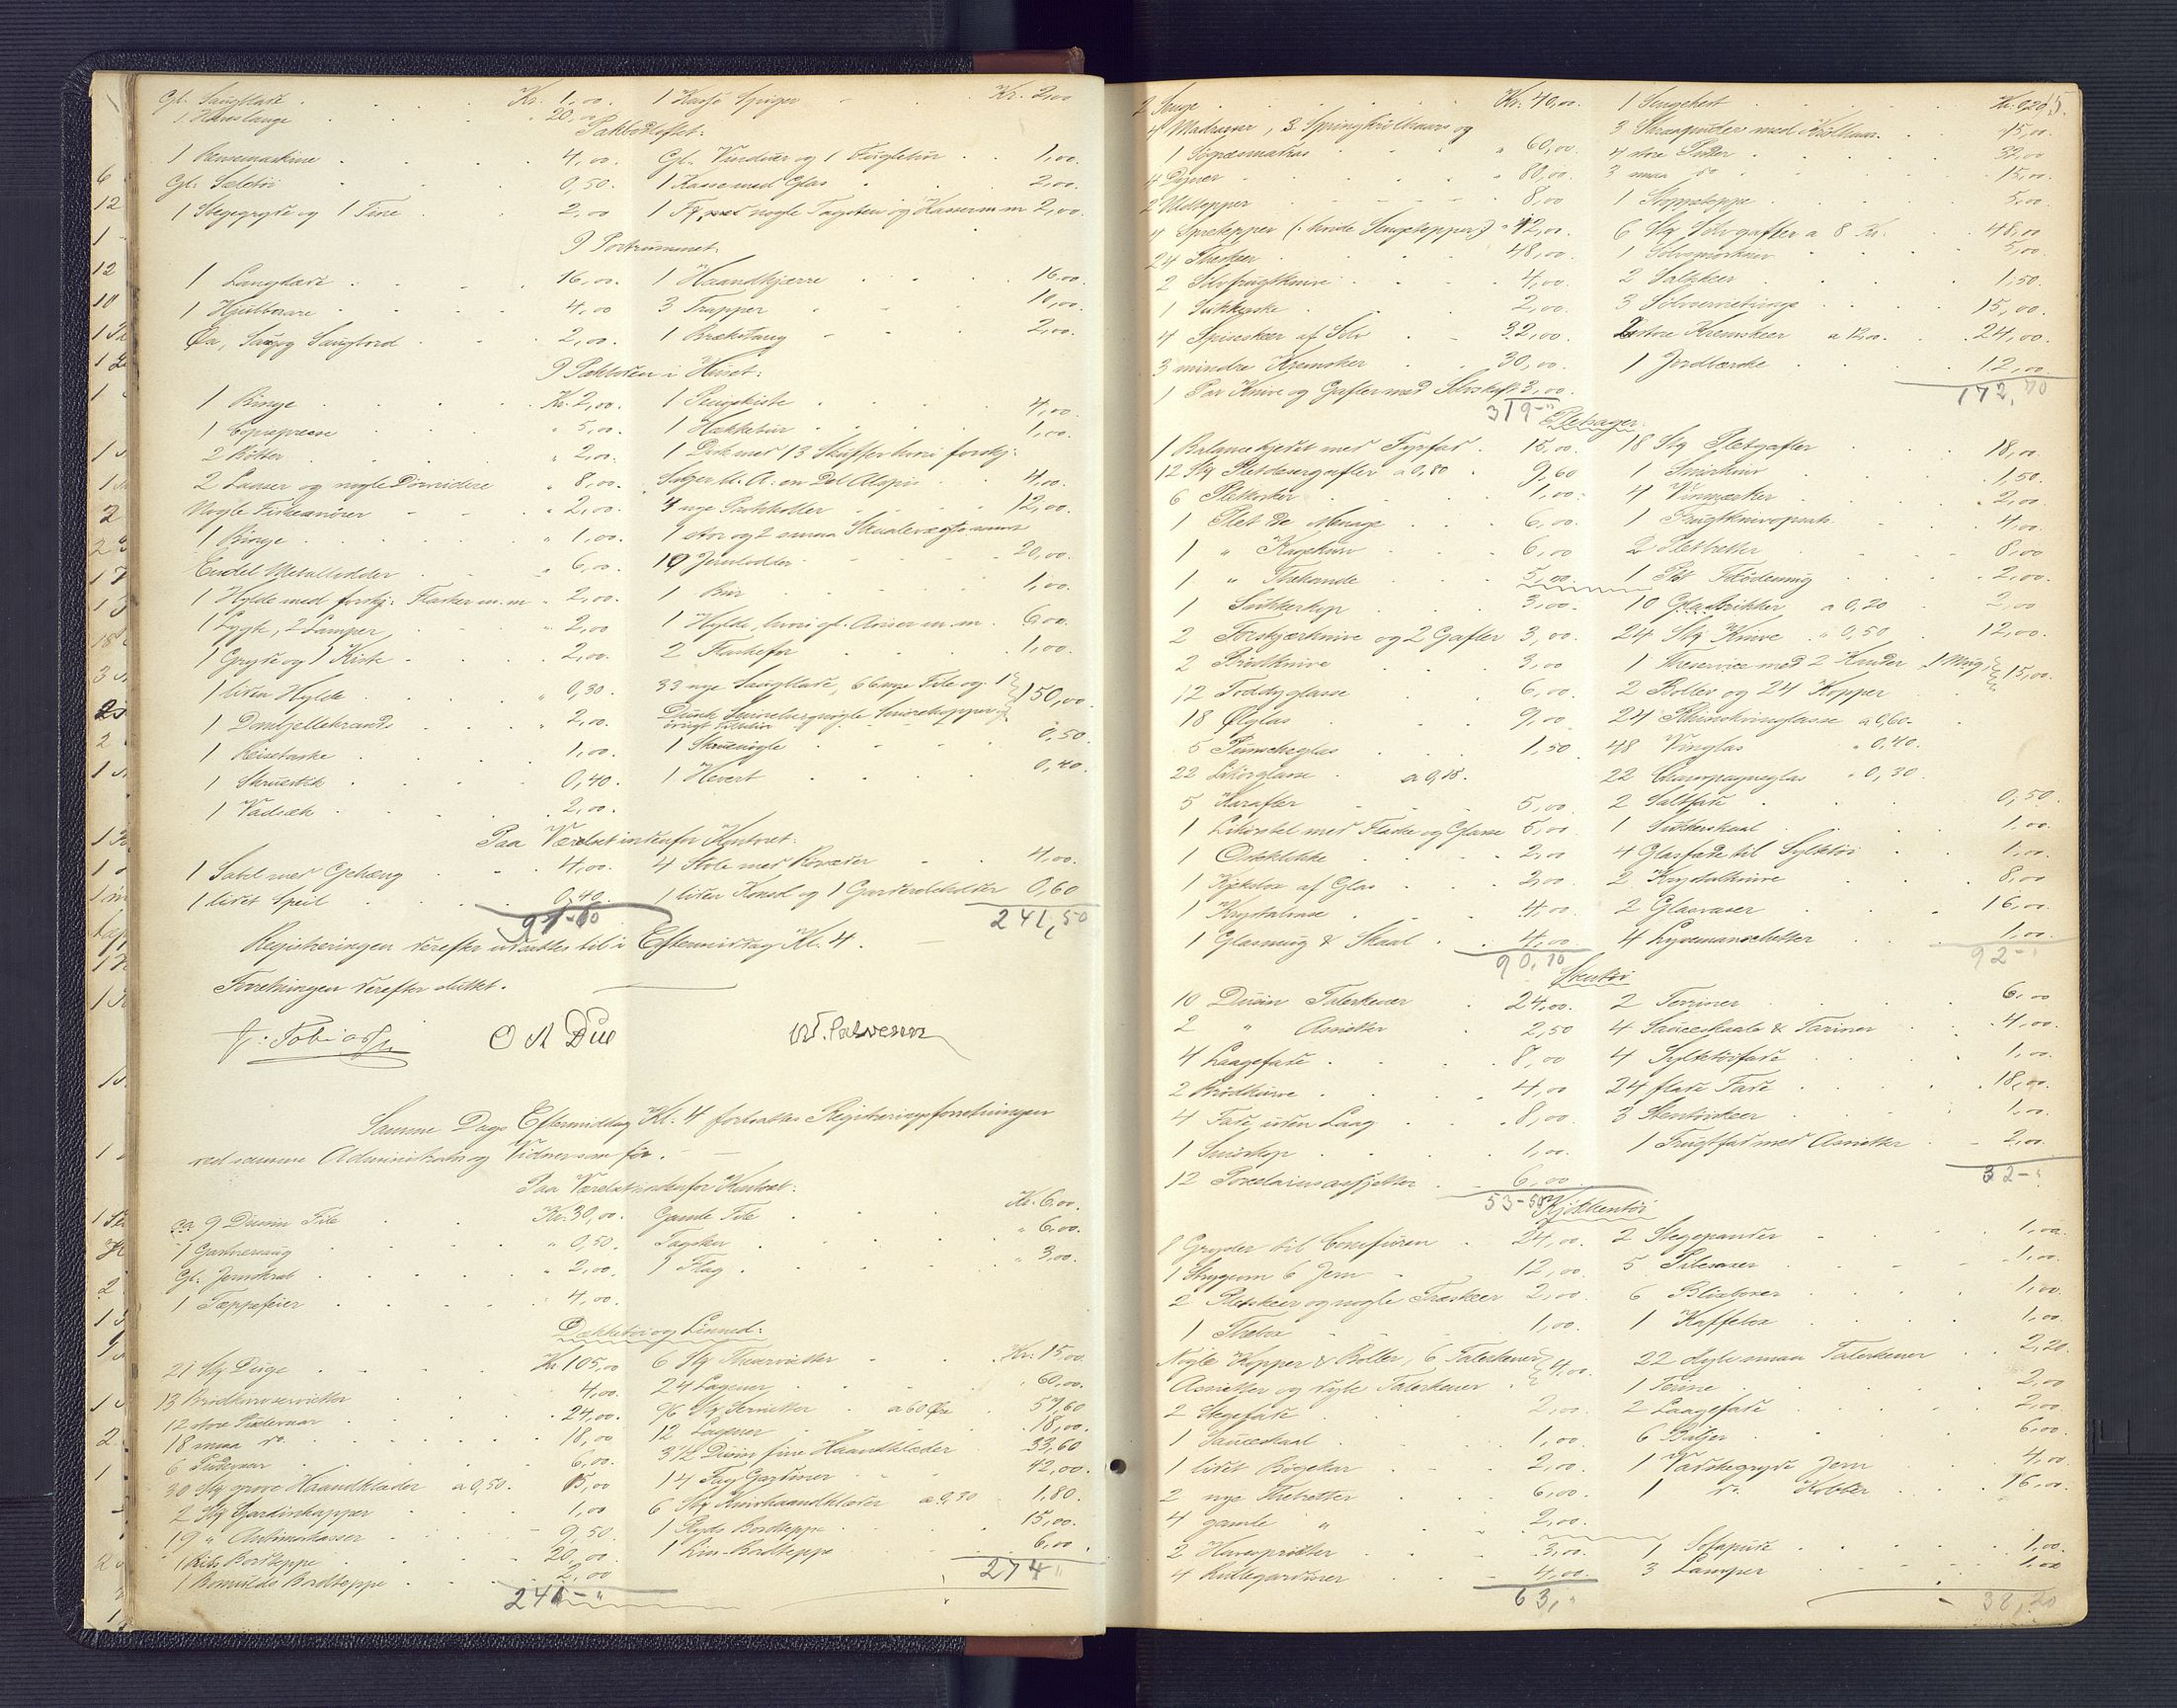 1 Kasse Kr. 2,00
1 20,00
Pakbodloftet:
1 Rensemaskine 4,00. Gl. Vinduer og 1 Fuglebur 1,00.
Gl. Seletøi 0,50. 1 Kasse med Glas 2,00.
1 Stegegryde og 1 Tine 2,00 1 nogle Tagsten og Kasser m.m 2,00.
I Portrummet:
1 16,00. 1 Haandkjærre 16,00.
1 Hjulbørare 4,00 3 Trapper 10,00.
2,00. 1 Brækstang 2,00.
I Pakboden i Huset:
1 Binge Kr. 2,00. 1 Pengekiste 4,00.
1 Copiepresse 5,00. 1 Hækkebur 1,00.
2 Bøtter 2,00. 1 Disk med 13 Skuffer hvori forskj:
2 Lanser og nogle 8,00. 4,00.
Nogle Fiskesnører 2,00. 4 nye 12,00.
1 Binge 1,00. 1 stor og 2 smaa Skaalevægte samt
Endel Metallodder 6,00. 19 Jernlodder 20,00.
1 Hylde med forskj: Flasker m.m 2,00. 1 Bur 1,00.
1 Lygte, 2 Lamper 2,00 1 Hylde, hvori gl. Aviser m.m. 6,00.
1 Gryde og 1 Kiste 2,00. 2 Flaskefor 1,00.
1 liden Hylde 0,30. 33 nye 66 nye File og 1 150,00.
1 Donkjeltebrand 2,00.
1 Reisetaske 1,00. 1 Skruenøgle 0,50
1 Skruestik 0,40. 1 Hevert 0,40.
1 Vadsæk 2,00.
Paa Værelset indenfor Kontoret:
1 Sabel med Gehæng 4,00. 4 Stole med 4,00.
1 lidet Speil 0,40. 1 liden Konsol og 1 Garderobeholder 0,60
97-60 241,50
Registreringen derefter udsattes til i Eftermiddag Kl. 4.
Forretningen derefter sluttet.
J. Tobias O A Due W. Salvesen
Samme Dags Eftermiddag Kl. 4 fortsattes Registreringsforretningen
ved samme Administrator og Vidner som før.
Paa Værelset indenfor Kontoret:
ca. 9 Dusin File Kr. 30,00. Gamle File Kr. 6,00.
1 0,50. Tagsker 6,00.
Gl. Jernskrab 2,00. 1 Flag 3,00.
1 Tæppefeier 4,00.
Dækketøi og Linned:
21 Stk Duge Kr 105,00 6 Stk Theservietter Kr. 15,00
13 Brødkurvservietter 4,00. 24 Lagener 60,00.
12 store Pudevaar 24,00. 96 Stk Servietter a 60 Øre 57,60
18 smaa do. 18,00 12 Lagener 18,00.
6 Pudevaar 6,00. 3 1/2 Dusin fine Haandklæder 33,60
30 Stk grove Haandklæder a 0,50. 15,00 14 Fag Gardiner 42,00.
2 Stk Gardinkapper 1,00 6 Stk Knivhaandklæder a 0,30 1,80.
19 " Antimakasser 9,50. 1 Plyds Bordteppe 15,00.
1 Bordteppe 20,00. 1 Bordteppe 6,00.
1 Bomulds Bordteppe 2,00
241-" 274"
2 Senge Kr. 40,00. 1 Sengehest Kr. 0,20 15.
4 Madrasser, 3 Springkrølhaars og 3 Skraaputer med Krølhaar 15,00.
1 Søgræsmatras 60,00. 4 store Puder 32,00
4 Dyner 80,00. 3 smaa do 15,00.
2 Uldtepper 8,00 1 Stoppeteppe 5,00.
4 Spretepper (: hvide Sengetepper:) 12,00. 6 Stk Sølvgafler a 8 Kr. 48,00
24 Theskeer 48,00. 1 Sølvsmørkniv 5,00.
2 Sølvfrugtknive 4,00. 2 Saltskeer 1,50.
1 Sukkerske 2,00. 3 Sølvservietringe 15,00.
4 Spiseskeer af Sølv 32,00. 2 store Kremskeer a 12,00. 24,00.
3 mindre Kremsker 30,00. 1 Jordbærske 12,00
1 Par Knive og Gafler med Sølvskaft 3,00.
319-" 172,70
Pletsager:
1 Balancekjedel med Fyrfad 15,00. 18 Stk Pletgafler 18,00
12 Stk Pletdesertgafler a 0,80 9,60 1 Smørkniv 1,50.
6 1,00. 4 Vinmærker 2,00.
1 Plet de Menage 6,00. 1 Frugtknivopsats 4,00.
1 " Kagekurv 6,00 2 Pletbretter 8,00
1 " Thekande 5,00. 1 Plet Flødemug 2,00.
1 Sukkerkop 3,00. 10 Glasbrikker a 0,20 2,00
2 Forskjærknive og 2 Gafler 3,00. 24 Stk Knive " 0,50 12,00.
2 Brødknive 3,00 1 Theservice med 2 Kander 1 Mug 15,00.
12 Toddyglasse 6,00. 2 Boller og 24 Kopper
18 Ølglas 9,00 24 Rhinskvinglasse a 0,60.
5 Punscheglas 1,50 48 Vinglas " 0,40.
22 Likørglasse a 0,15. 22 Champagneglas " 0,30
5 Karafler 5,00 2 Saltfade 0,50.
1 Likørstel med Flaske og Glasse 5,00 1 Sukkerskaal 1,00.
1 Osteklokke 2,00 4 Glasfade til Syltetøi 1,00.
1 Kjeksbox af Glas 2,00 2 Krystalkurve 8,00
1 Krystalvase 4,00 2 Glasvaser 16,00.
1 Glasmug & Skaal 4,00 4 Lysemanschetter 1,00.
90,10 92-"
Stentøi
10 Dusin Talerkener 24,00 2 Terriner 6,00
2 " Assietter 2,50 4 Sauceskaale & Tariner 4,00.
4 Laagefade 8,00 4 Syltetøifade 1,00.
2 Brødkurve 4,00 24 flade Fade 18,00.
4 Fade, uden Laag 8,00 3 Stentøiskeer 1,00.
1 Smørkop 1,00. 1 Frugtfad med Assietter 2,00.
12 Porcelainsassjetter 6,00
53-50 32-"
Kjøkkentøi
8 Gryder til Comfuren 24,00. 2 Stegepander 1,00.
1 Strygeovn 6 Jern 12,00. 5 1,00.
2 Pletskeer og nogle Træskeer 2,00 6 Blixboxer 1,00.
1 Thebox 1,00. 1 Kaffebox 1,00.
Nogle Kopper & Boller, 6 Talerkener 4,00. 22 dybe smaa Talerkener 2,20.
Assietter og dybe Talerkener 1 Terine 2,00
2 Stegefade 2,00. 2 Laagefade 2,00.
1 Sauceskaal 1,00 6 Baljer 6,00.
1 lidet Bøgekar 2,00. 1 Vadskegryde Jern 4,00.
2 nye Thebretter 6,00. 1 do. Kobber 16,00.
4 gamle " 2,00.
2 3,00. 1 Sofapude 1,00.
4 Rullegardiner 4,00. 3 Lamper 1,00
63," 38,20